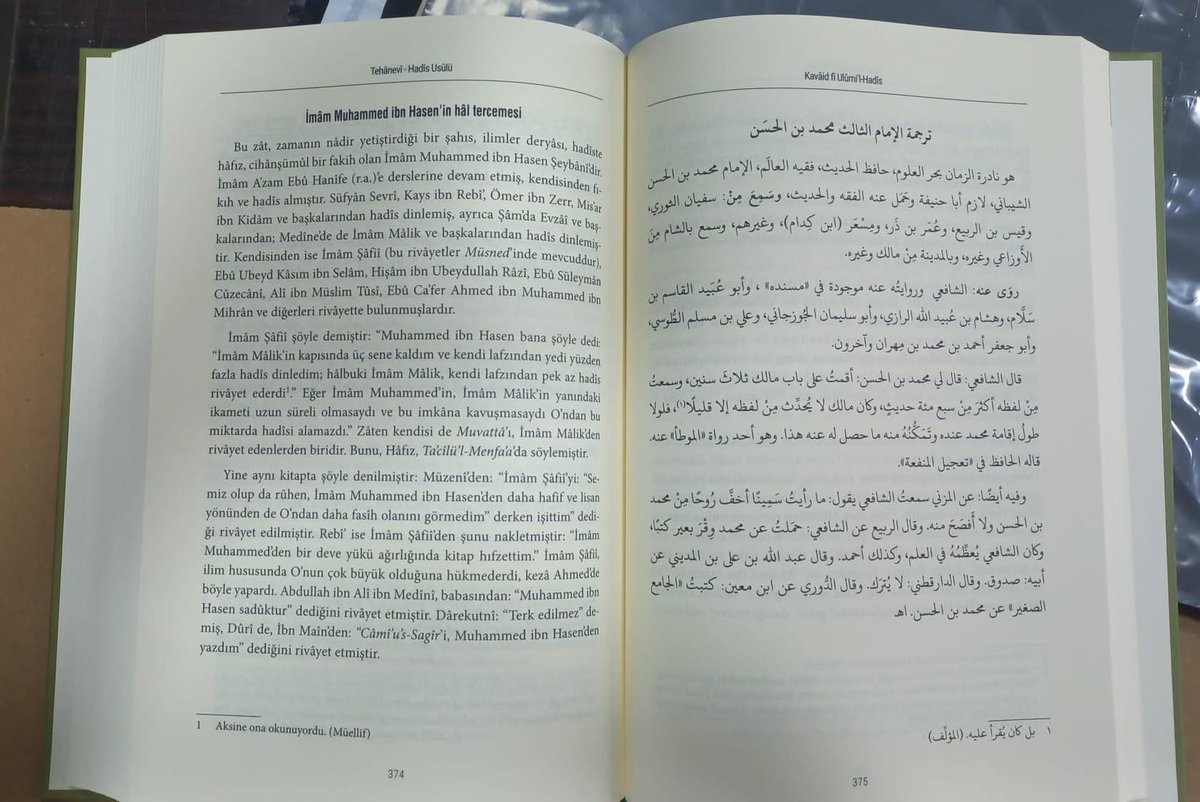 Tehânevî - Hadîs Usûlü
İmâm Muhammed ibn Hasen'in hâl tercemesi
Bu zât, zamanın nâdir yetiştirdiği bir şahıs, ilimler deryâsı, hadîste
hâfız, cihânşümûl bir fakih olan İmâm Muhammed ibn Hasen Şeybânî'dir.
İmâm A'zam Ebû Hanîfe (r.a.)'e derslerine devam etmiş, kendisinden fı-
kıh ve hadîs almıştır. Süfyân Sevrî, Kays ibn Rebî', Ömer ibn Zerr, Mis'ar
ibn Kidâm ve başkalarından hadîs dinlemiş, ayrıca Şâm'da Evzâî ve baş-
kalarından; Medîne'de de İmâm Mâlik ve başkalarından hadîs dinlemiş-
tir. Kendisinden ise İmâm Şâfiî (bu rivâyetler Müsned'inde mevcuddur),
Ebû Ubeyd Kâsım ibn Selâm, Hişâm ibn Ubeydullah Râzî, Ebû Süleymân
Cûzecânî, Alî ibn Müslim Tûsî, Ebû Ca'fer Ahmed ibn Muhammed ibn
Mihrân ve diğerleri rivâyette bulunmuşlardır.
İmâm Şâfiî şöyle demiştir: “Muhammed ibn Hasen bana şöyle dedi:
“İmâm Mâlik'in kapısında üç sene kaldım ve kendi lafzından yedi yüzden
fazla hadîs dinledim; hâlbuki İmâm Mâlik, kendi lafzından pek az hadîs
rivâyet ederdi¹.” Eğer İmâm Muhammed'in, İmâm Mâlik'in yanındaki
ikameti uzun süreli olmasaydı ve bu imkâna kavuşmasaydı O'ndan bu
miktarda hadîsi alamazdı.” Zâten kendisi de Muvattâ'ı, İmâm Mâlik'den
rivâyet edenlerden biridir. Bunu, Hâfız, Ta'cîlü'l-Menfa'a'da söylemiştir.
Yine aynı kitapta şöyle denilmiştir: Müzenî'den: “İmâm Şâfiî'yi: “Se-
miz olup da rûhen, İmâm Muhammed ibn Hasen'den daha hafif ve lisan
yönünden de O'ndan daha fasîh olanını görmedim” derken işittim” dedi-
ği rivâyet edilmiştir. Rebî' ise İmâm Şâfiî'den şunu nakletmiştir: “İmâm
Muhammed'den bir deve yükü ağırlığında kitap hıfzettim.” İmâm Şâfiî,
ilim hususunda O'nun çok büyük olduğuna hükmederdi, kezâ Ahmed'de
böyle yapardı. Abdullah ibn Alî ibn Medînî, babasından: “Muhammed ibn
Hasen sadûktur” dediğini rivâyet etmiştir. Dârekutnî: “Terk edilmez” de-
miş, Dûrî de, İbn Maîn'den: “Câmi'u's-Sagîr'i, Muhammed ibn Hasen'den
yazdım” dediğini rivâyet etmiştir.
1 Aksine ona okunuyordu. (Müellif)
374
Kavâid fî Ulûmi'l-Hadîs
ترجمة الإمام الثالث محمد بن الحسَن
هو نادرة الزمان بحر العلوم، حافظ الحديث، فقيه العالَم، الإمام محمد بن الحسن
الشيباني، لازم أبا حنيفة وحَمَل عنه الفقه والحديث، وسَمِعَ مِنْ: سفيان الثوري،
وقيس بن الربيع، وعُمَر بن ذَر، ومِسْعَر (ابن كِدام)، وغيرهم، وسمع بالشام مِنَ
الأَوزاعي وغيره، وبالمدينة مِنْ مالك وغيره.
رؤى عنه: الشافعي وروايتُه عنه موجودة في «مسنده» ، وأبو عُبَيد القاسم بن
سَلَّام، وهشام بن عُبيد الله الرازي، وأبو سليمان الجُوزجاني، وعلي بن مسلم الطُّوسي،
وأبو جعفر أحمد بن محمد بن مِهران وآخرون.
قال الشافعي: قال لي محمد بن الحسن: أقمتُ على باب مالك ثلاثَ سنين، وسمعتُ
مِنْ لفظه أكثرَ مِنْ سبع مئة حديثٍ، وكان مالك لا يُحدِّث مِنْ لفظه إلا قليلًا(١)، فلولا
طولُ إقامة محمد عنده وتَمَكُّنُهُ منه ما حصل له عنه هذا. وهو أحد رواة «الموطأ» عنه.
قاله الحافظ في «تعجيل المنفعة».
وفيه أيضًا: عن المزني سمعتُ الشافعي يقول: ما رأيتُ سَمِينًا أخفَّ رُوحًا مِنْ محمد
بن الحسن ولا أَفصَحَ منه. وقال الربيع عن الشافعي: حمَلتُ عن محمد وِقْرَ بعير كتبًا،
وكان الشافعي يُعظِّمُهُ في العلم، وكذلك أحمد. وقال عبد الله بن على بن المديني عن
أبيه: صدوق. وقال الدارقطني: لا يُترَك. وقال الدُّوري عن ابن معين: كتبتُ «الجامع
الصغير» عن محمد بن الحسن. اهـ
١ بل كان يُقرأ عليه. (المؤلِّف)
375